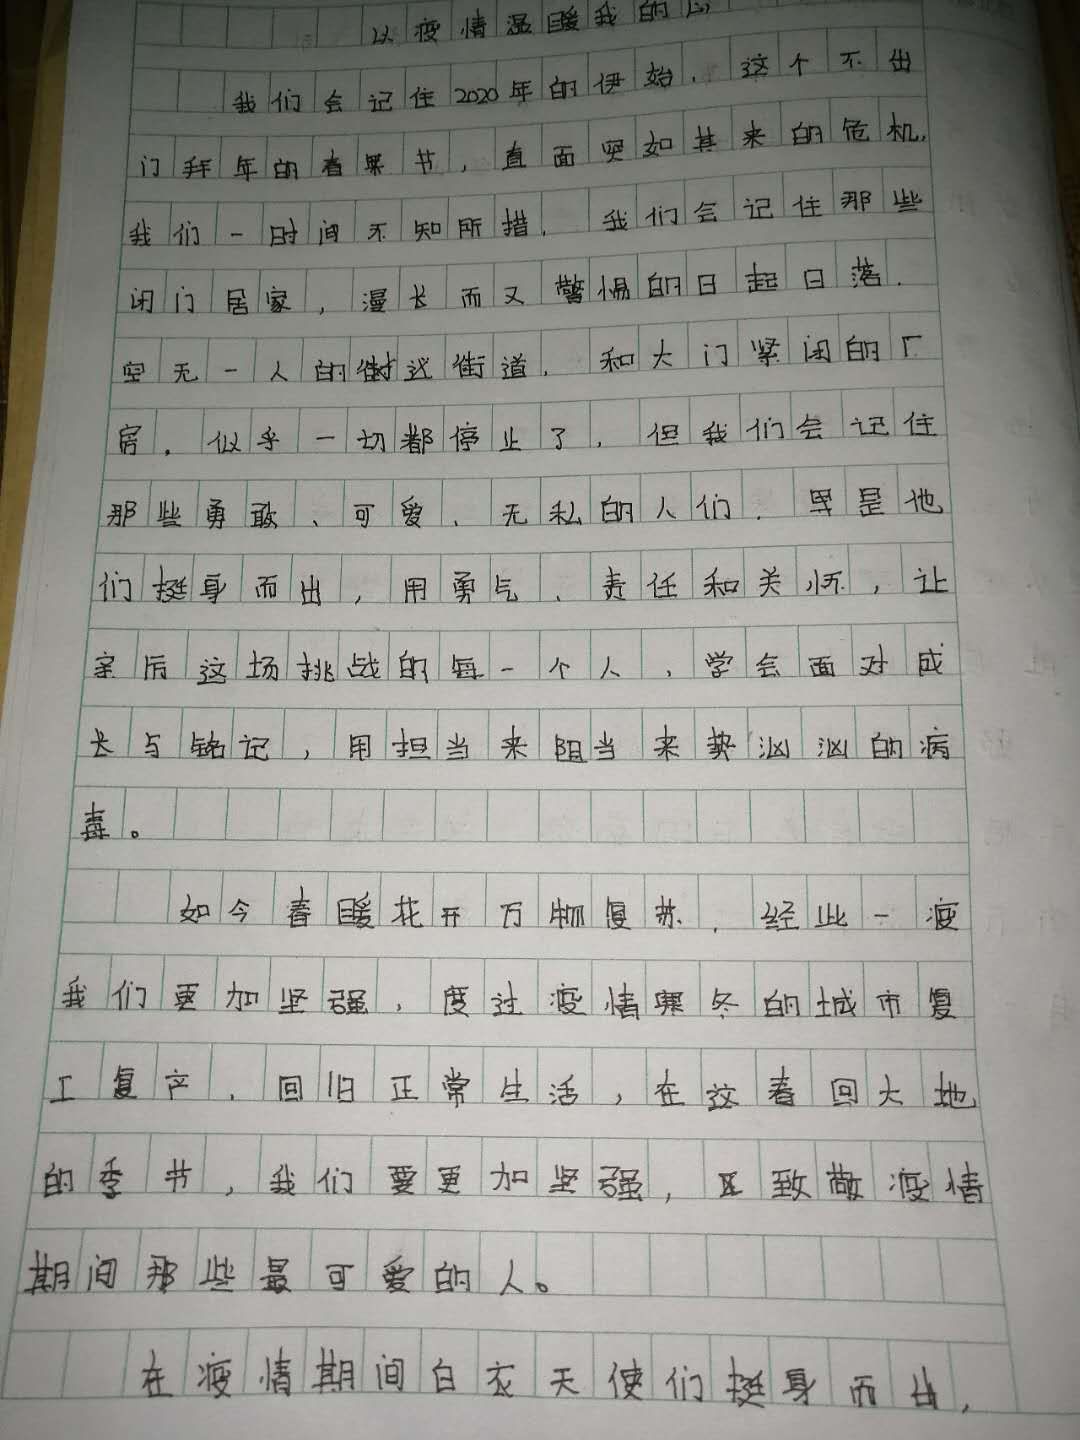 以疫情温暖我的心
我们会记住2020年的伊始.这个不出
门拜年的春节,直面突如其来的危机,
我们一时间不知所措.我们会记住那些
闭门居家,漫长而又警惕的日起日落.
空无一人的街道.和大门紧闭的厂
房.似乎一切都停止了.但我们会记住
那些勇敢、可爱、无私的人们.是他
们挺身而出,用勇气、责任和关怀,让
亲历这场挑战的每一个人,学会面对成
长与铭记,用担当来阻当来势汹汹的病
毒。
如今春暖花开万物复苏.经此一疫
我们更加坚强,度过疫情寒冬的城市复
工复产.回归正常生活,在这春回大地
的季节,我们要更加坚强,致敬疫情
期间那些最可爱的人。
在疫情期间白衣天使们挺身而出,